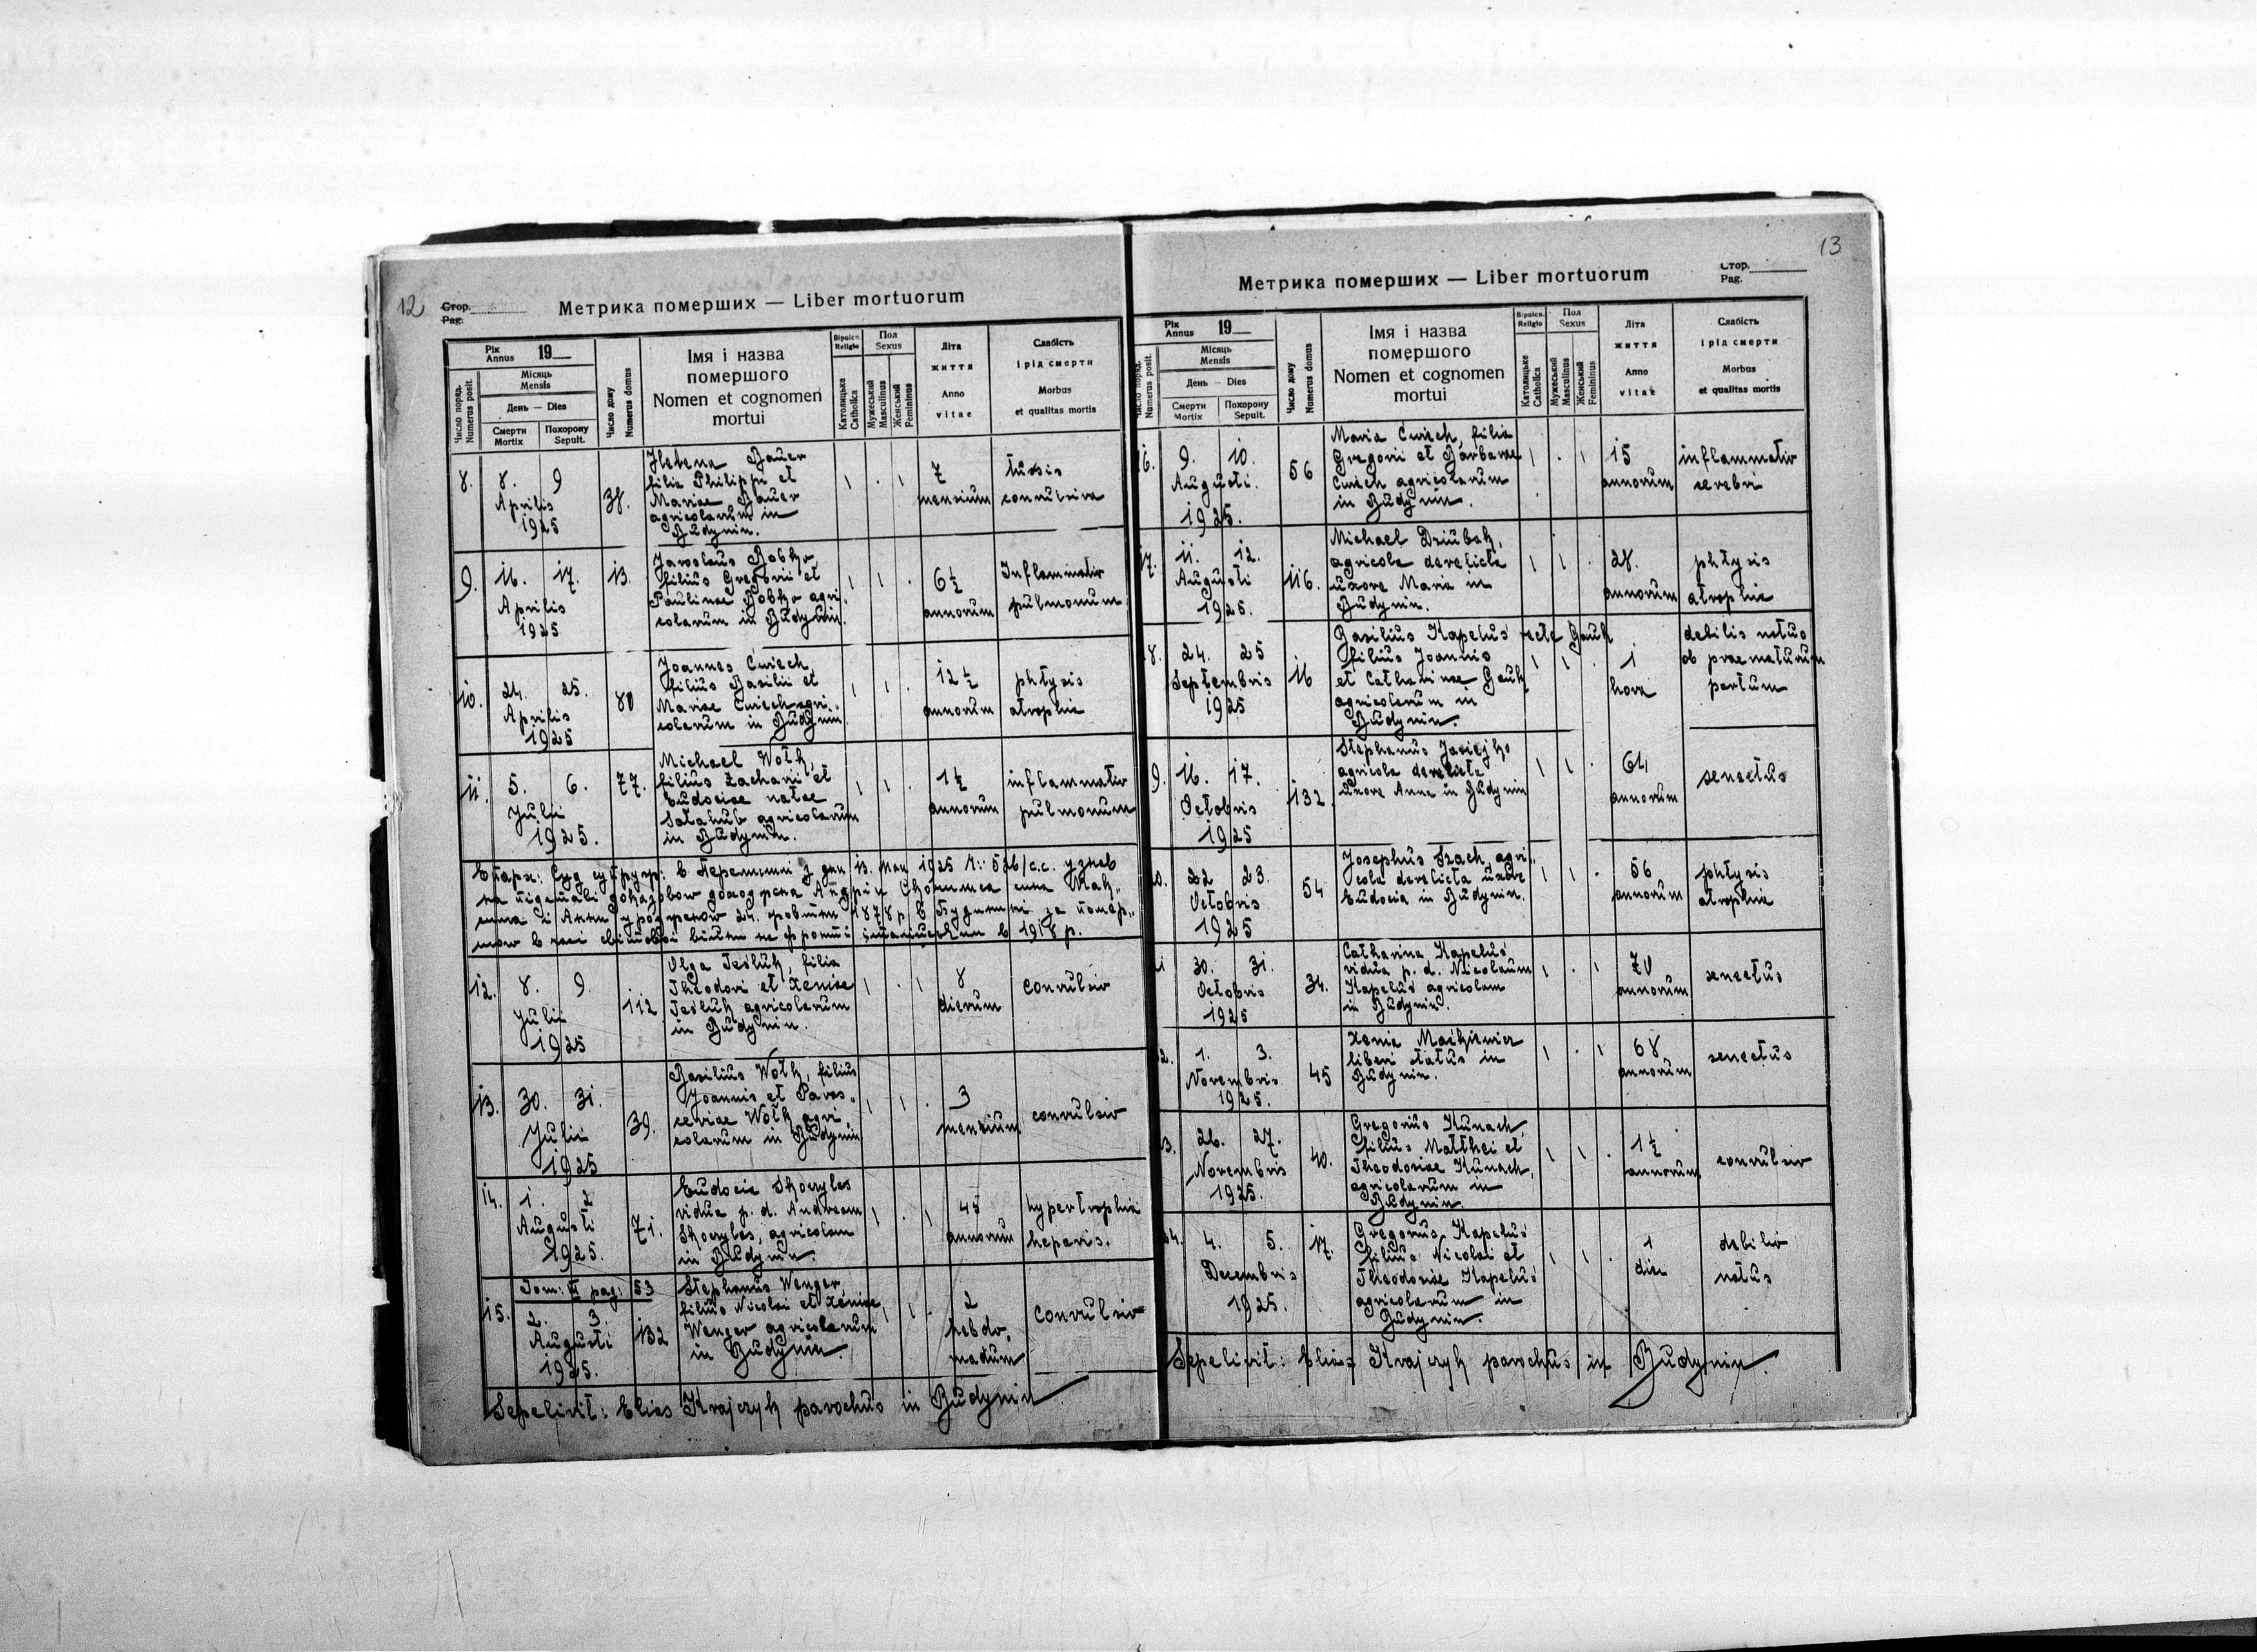 12
Стор.
Pag.
Метрика померших — Liber mortuorum
Рік
Annus
19
Число поряд.
Numerus posit.
Місяць
Mensis
День — Dies
Смерти
Mortix
Похорону
Sepult.
Число дому
Numerus domus
Імя і назва
помершого
Nomen et cognomen
mortui
Віроісп.
Religio
Католицьке
Catholica
Пол
Sexus
Мужеський
Masculinus
Женський
Femininus
Літа
життя
Anno
vitae
Слабість
і рід смерти
Morbus
et qualitas mortis
8. 8. 9
Aprilis
1925
38.
Helena Bauer
filia Philippi et
Mariae Bauer
agricolarum in
Budynin.
7
mensium
tussis
convulsiva
9. 16. 17.
Aprilis
1925
13.
Jaroslaus Bobko
filius Gregorii et
Paulinae Bobko agri„
colarum in Budynin.
6½
annorum
Inflammatio
pulmonum
10. 24. 25.
Aprilis
1925
80
Joannes Cwiech,
filius Basilii et
Mariae Cwiech agri„
colarum in Budynin.
12½
annorum
phtysis
atrophia
11. 5. 6.
Julii
1925.
77.
Michael Wołk,
filius Zacharii et
Eudociae natae
Sałahub agricolarum
in Budynin.
1½
annorum
inflammatio
pulmonum
Епарх: Суд супруж: в Перемишлі з дня 13. мая 1925 Ч: 526/с.с. узнав
на підставі доказів
сина і Анни уродженов 24. 1878 р. в Будинині за помер„
шов в часі світової війни на фронті італійськім в 1918 р.
12. 8. 9.
Julii
1925
112
Olga Tesluk, filia
Theodori et Xeniae
Tesluk agricolarum
in Budynin.
8
dierum
convulsio
13. 30. 31.
Julii
1925
39.
Basilius Wołk, filius
Joannis et Paras„
ceviae Wołk agri„
colarum in Budynin
3
mensium
convulsio
14. 1. 2
Augusti
1925.
71.
Eudocia Skoryles
vidua p. d. Andream
Skoryles, agricolam
in Budynin.
45
annorum
hypertrophia
heparis.
Tom: II pag: 53
15. 2. 3.
Augusti
1925.
132
Stephanus Wenger,
filius Nicolai et Xeniae,
Wenger agricolarum
in Budynin.
2
hebdo„
madum
convulsio
Sepelivit: Elias Krajczyk parochus in Budynin
13
Стор.
Pag.
Метрика померших — Liber mortuorum
Рік
Annus
19
Число поряд.
Numerus posit.
Місяць
Mensis
День — Dies
Смерти
Mortix
Похорону
Sepult.
Число дому
Numerus domus
Імя і назва
помершого
Nomen et cognomen
mortui
Віроісп.
Religio
Католицьке
Catholica
Пол
Sexus
Мужеський
Masculinus
Женський
Femininus
Літа
життя
Anno
vitae
Слабість
і рід смерти
Morbus
et qualitas mortis
16. 9. 10.
Augusti.
1925.
56
Maria Cwiech, filia
Gregorii et Barbarae
Cwiech agricolarum
in Budynin.
15
annorum
inflammatio
cerebri
17. 11. 12.
Augusti
1925.
116.
Michael Dziubak,
agricola derelicta
uxore Maria in
Budynin.
28.
annorum
phtysis
atrophia
18. 24. 25
Septembris
1925
16
Basilius Kapeluś recte Gauk
filius Joannis
et Catharinae Gauk
agricolarum in
Budynin.
1
hora
debilis natus
ob praematurum
partum
9. 16. 17.
Octobris
1925
132.
Stephanus Jaciejko
agricola derelicta
uxore Anna in Budynin
64
annorum
senectus
0. 22 23.
Octobris
1925
54
Josephus Szach, agri„
cola derelicta uxore
Eudocia in Budynin.
56
annorum
phtysis
atrophia
1 30. 31.
Octobris
1925
34.
Catharina Kapeluś
vidua p. d. Nicolaum
Kapeluś agricolam
in Budynin.
70
annorum
senectus
2. 1. 3.
Novembris
1925.
45
Xenia Maćkiewicz
liberi status in
Budynin.
68
annorum
senectus
3. 26. 27.
Novembris
1925.
40.
Gregorius Kunach,
filius Matthei et
Theodosiae Kunach,
agricolarum in
Budynin.
1½
annorum
convulsio
24. 4. 5.
Decembris
1925.
17.
Gregorius Kapeluś
filius Nicolai et
Theodosiae Kapeluś
agricolarum in
Budynin.
1
die
debilis
natus
Sepelivit: Elias Krajczyk parochus in Budynin.